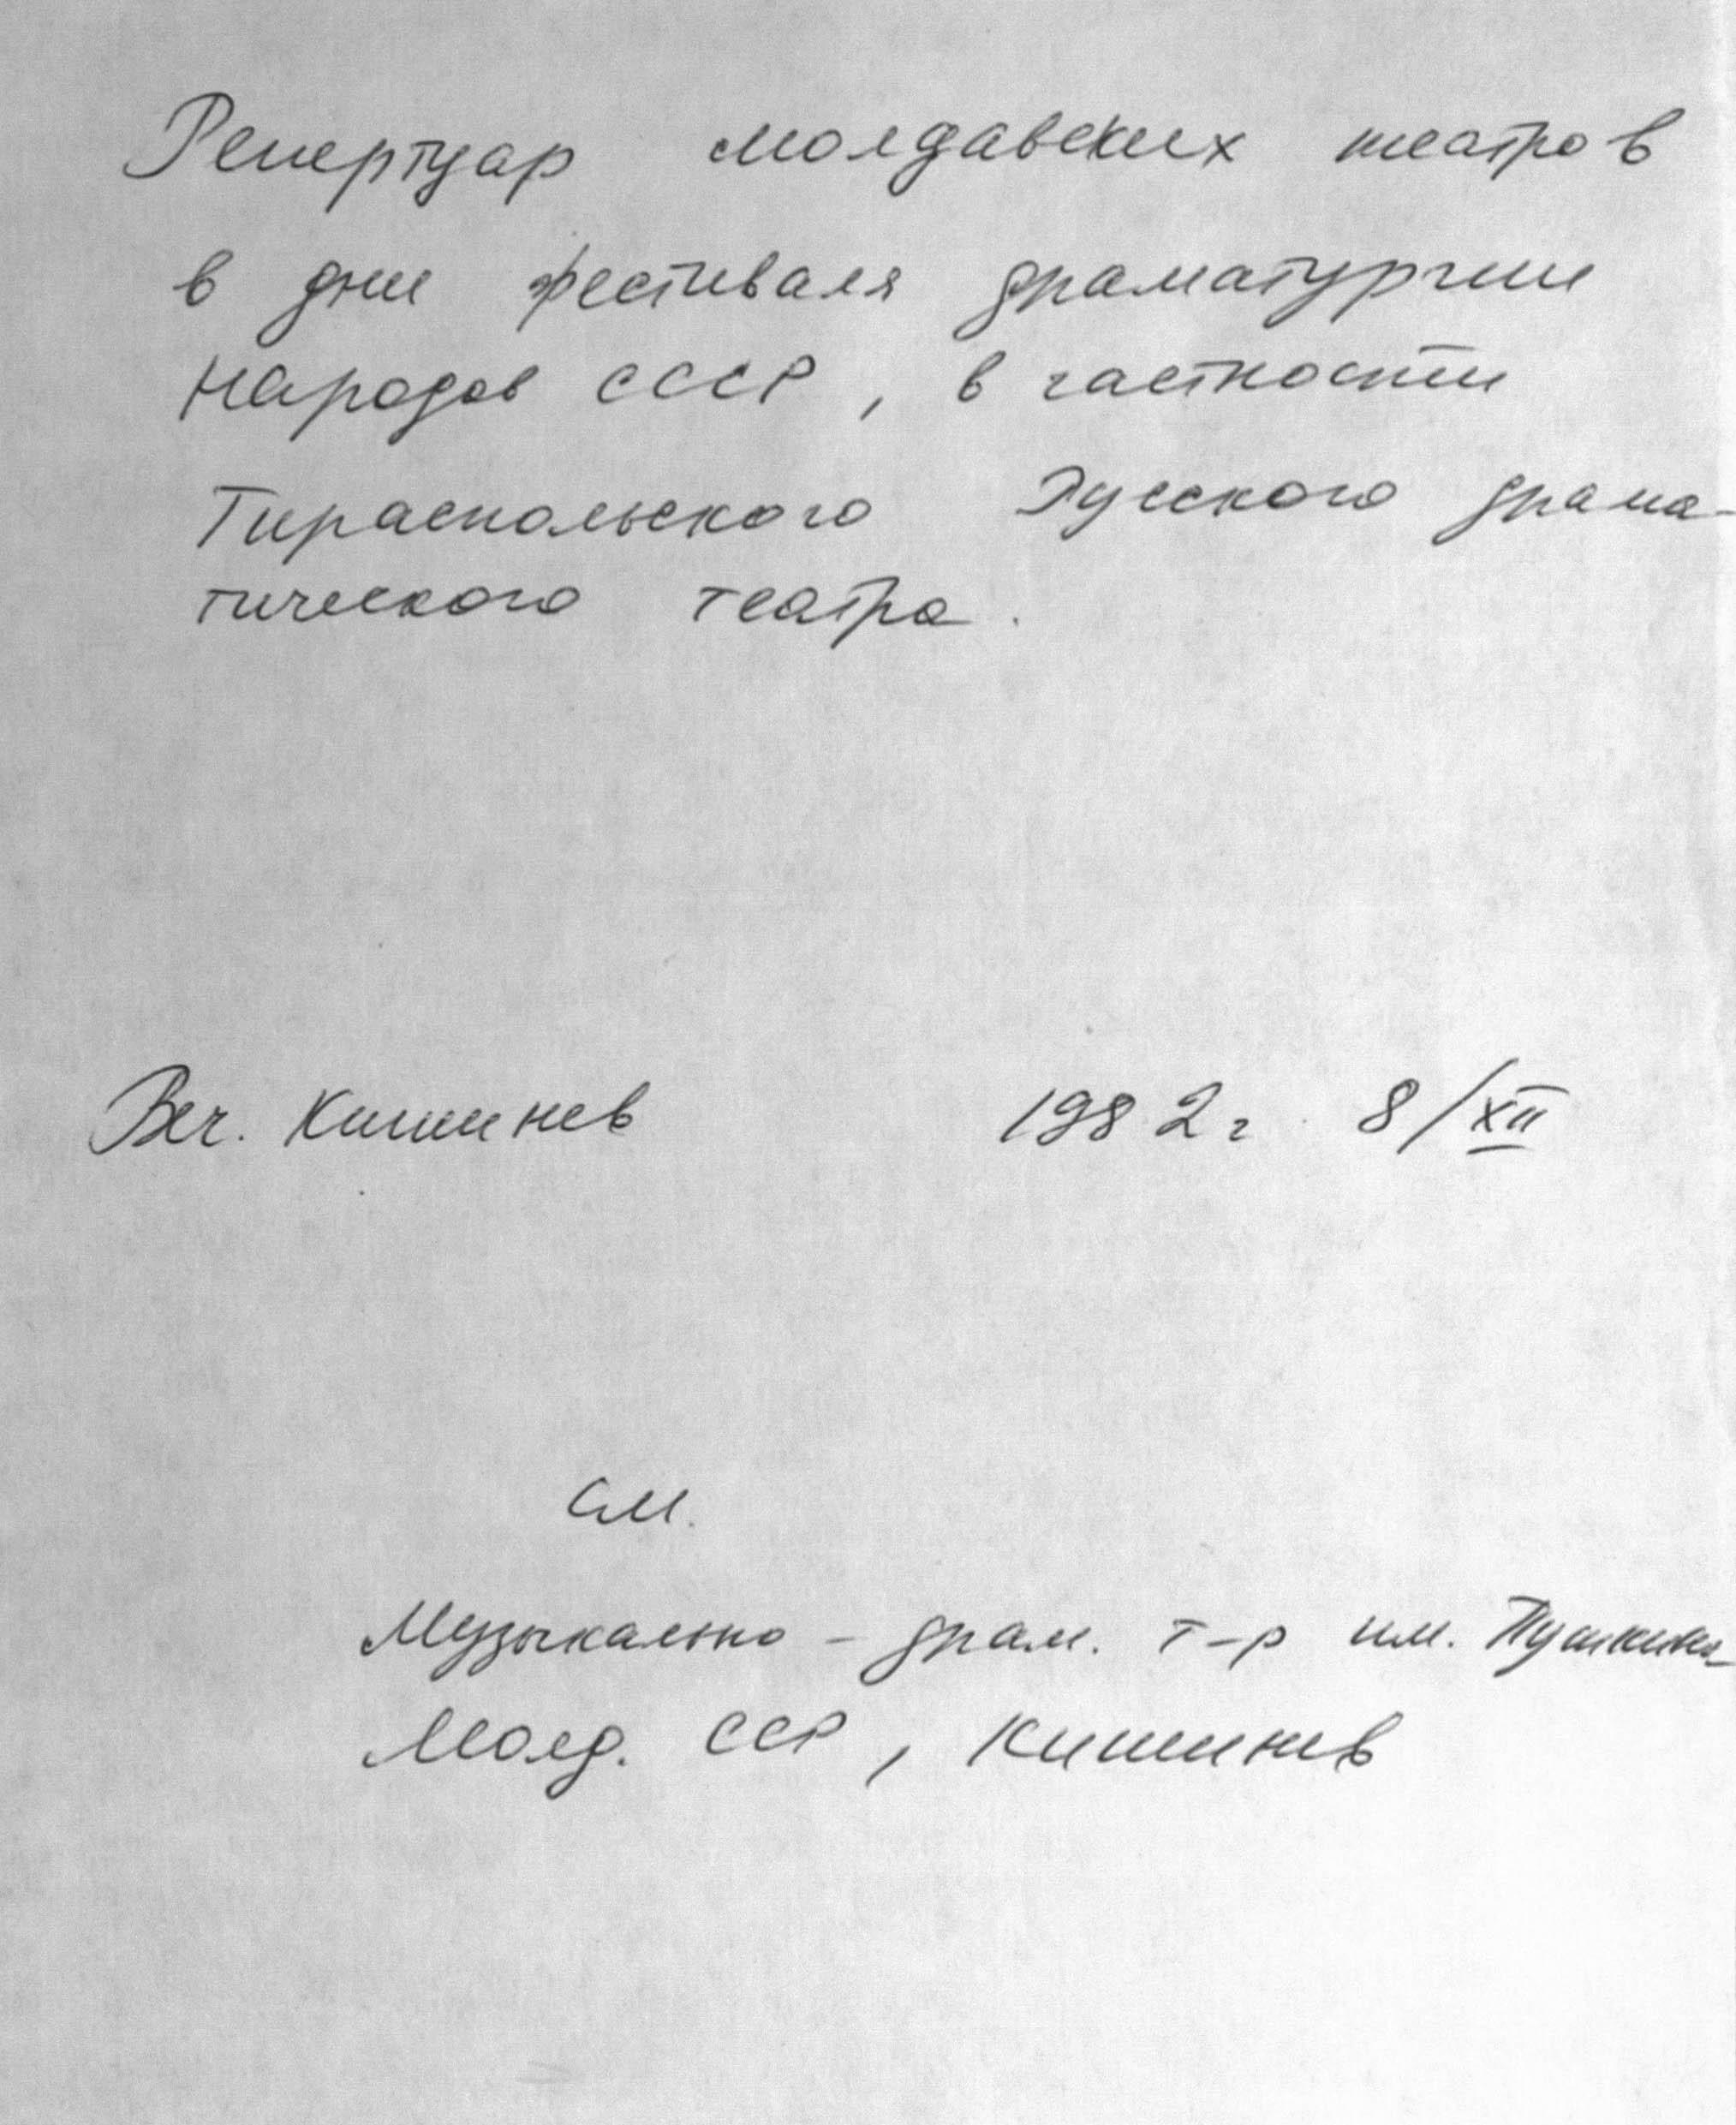 Репертуар молдавских театров
в дни фестиваля драматургии
народов СССР, в частности
Тираспольского Русского драма-
тического театра.
Веч. Кишинев 1982 г. 8/XII
См.
Музыкально - драм. т-р им. Пушкина
Молд. ССР, Кишинев